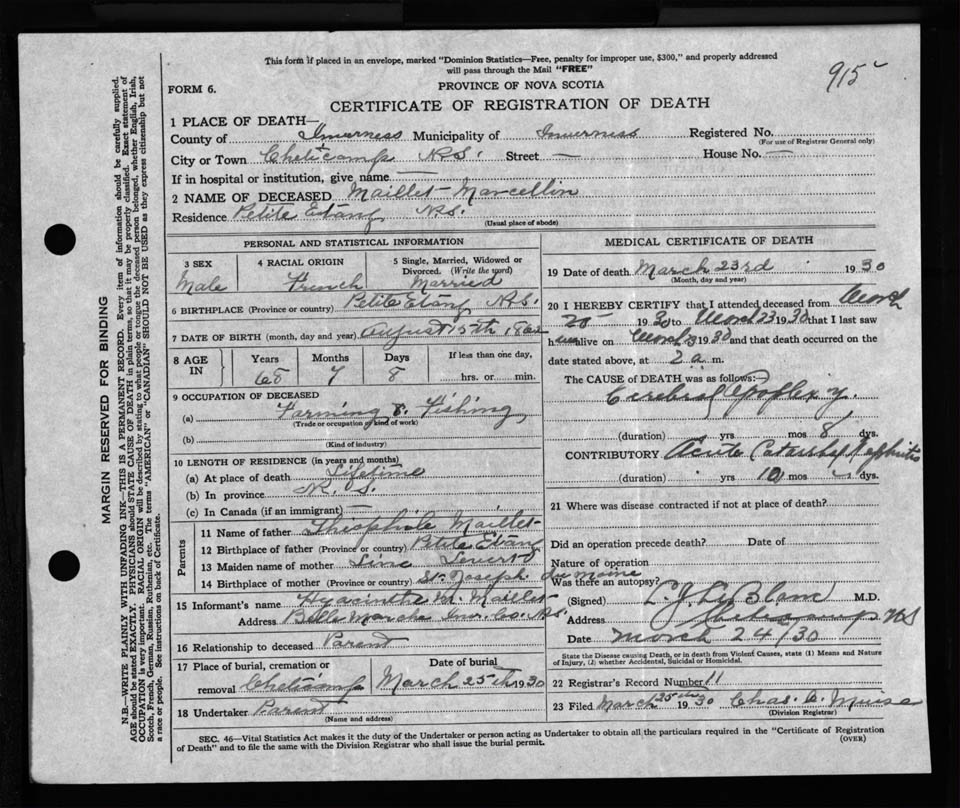 This form if placed in an envelope, marked "Dominion Statistics—Free, penalty for improper use, $300," and properly addressed
will pass through the Mail "FREE"
915
FORM 6.
PROVINCE OF NOVA SCOTIA
CERTIFICATE OF REGISTRATION OF DEATH
1 PLACE OF DEATH—
County of Inverness Municipality of Inverness Registered No.
(For use of Registrar General only)
City or Town Cheticamp N.S. Street — House No. —
If in hospital or institution, give name —
2 NAME OF DECEASED Maillet Marcellin
Residence Petite Etang N.S.
(Usual place of abode)
PERSONAL AND STATISTICAL INFORMATION
3 SEX 4 RACIAL ORIGIN 5 Single, Married, Widowed or Divorced. (Write the word)
Male French Married
6 BIRTHPLACE (Province or country) Petite Etang N.S.
7 DATE OF BIRTH (month, day and year) August 15th 1862
8 AGE IN Years Months Days If less than one day,
68 7 8 hrs. or min.
9 OCCUPATION OF DECEASED
(a) Farming & Fishing
(Trade or occupation or kind of work)
(b)
(Kind of industry)
10 LENGTH OF RESIDENCE (in years and months)
(a) At place of death Lifetime
(b) In province N. S.
(c) In Canada (if an immigrant) —
Parents
11 Name of father Theophile Maillet
12 Birthplace of father (Province or country) Petite Etang
13 Maiden name of mother
14 Birthplace of mother (Province or country) St. Joseph du Moine
15 Informant's name Hyacinthe M. Maillet
Address Belle Marche Inv. Co. N.S.
16 Relationship to deceased Parent
17 Place of burial, cremation or removal Cheticamp Date of burial March 25th 1930
18 Undertaker Parent
(Name and address)
MEDICAL CERTIFICATE OF DEATH
19 Date of death March 23rd 1930
(Month, day and year)
20 I HEREBY CERTIFY that I attended deceased from March
20 1930 to March 23 1930 that I last saw
h im alive on March 23 1930 and that death occurred on the
date stated above, at 2 a m.
The CAUSE OF DEATH was as follows:
Cerebral Apoplexy
(duration) yrs mos 8 dys.
CONTRIBUTORY Acute Nephritis
(duration) yrs 10 mos dys.
21 Where was disease contracted if not at place of death?
Did an operation precede death? Date of
Nature of operation
Was there an autopsy?
(Signed) L. J. LeBlanc M.D.
Address Cheticamp NS
Date March 24/30
State the Disease causing Death, or in death from Violent Causes, state (1) Means and Nature
of Injury, (2) whether Accidental, Suicidal or Homicidal.
22 Registrar's Record Number 11
23 Filed March 25th 1930 Chas. Muise
(Division Registrar)
SEC. 46—Vital Statistics Act makes it the duty of the Undertaker or person acting as Undertaker to obtain all the particulars required in the "Certificate of Registration
of Death" and to file the same with the Division Registrar who shall issue the burial permit.
(OVER)
MARGIN RESERVED FOR BINDING
N.B.—WRITE PLAINLY WITH UNFADING INK—THIS IS A PERMANENT RECORD. Every item of information should be carefully supplied.
AGE should be stated EXACTLY. PHYSICIANS should STATE CAUSE OF DEATH in plain terms, so that it may be properly classified. Exact statement of
OCCUPATION is very important. RACIAL ORIGIN will be described by stating to what people or tongue the deceased person belonged, whether English, Irish,
Scotch, French, German, Russian, Ruthenian, etc. The terms "AMERICAN" or "CANADIAN" SHOULD NOT BE USED as they express citizenship but not
a race or people. See instructions on back of Certificate.